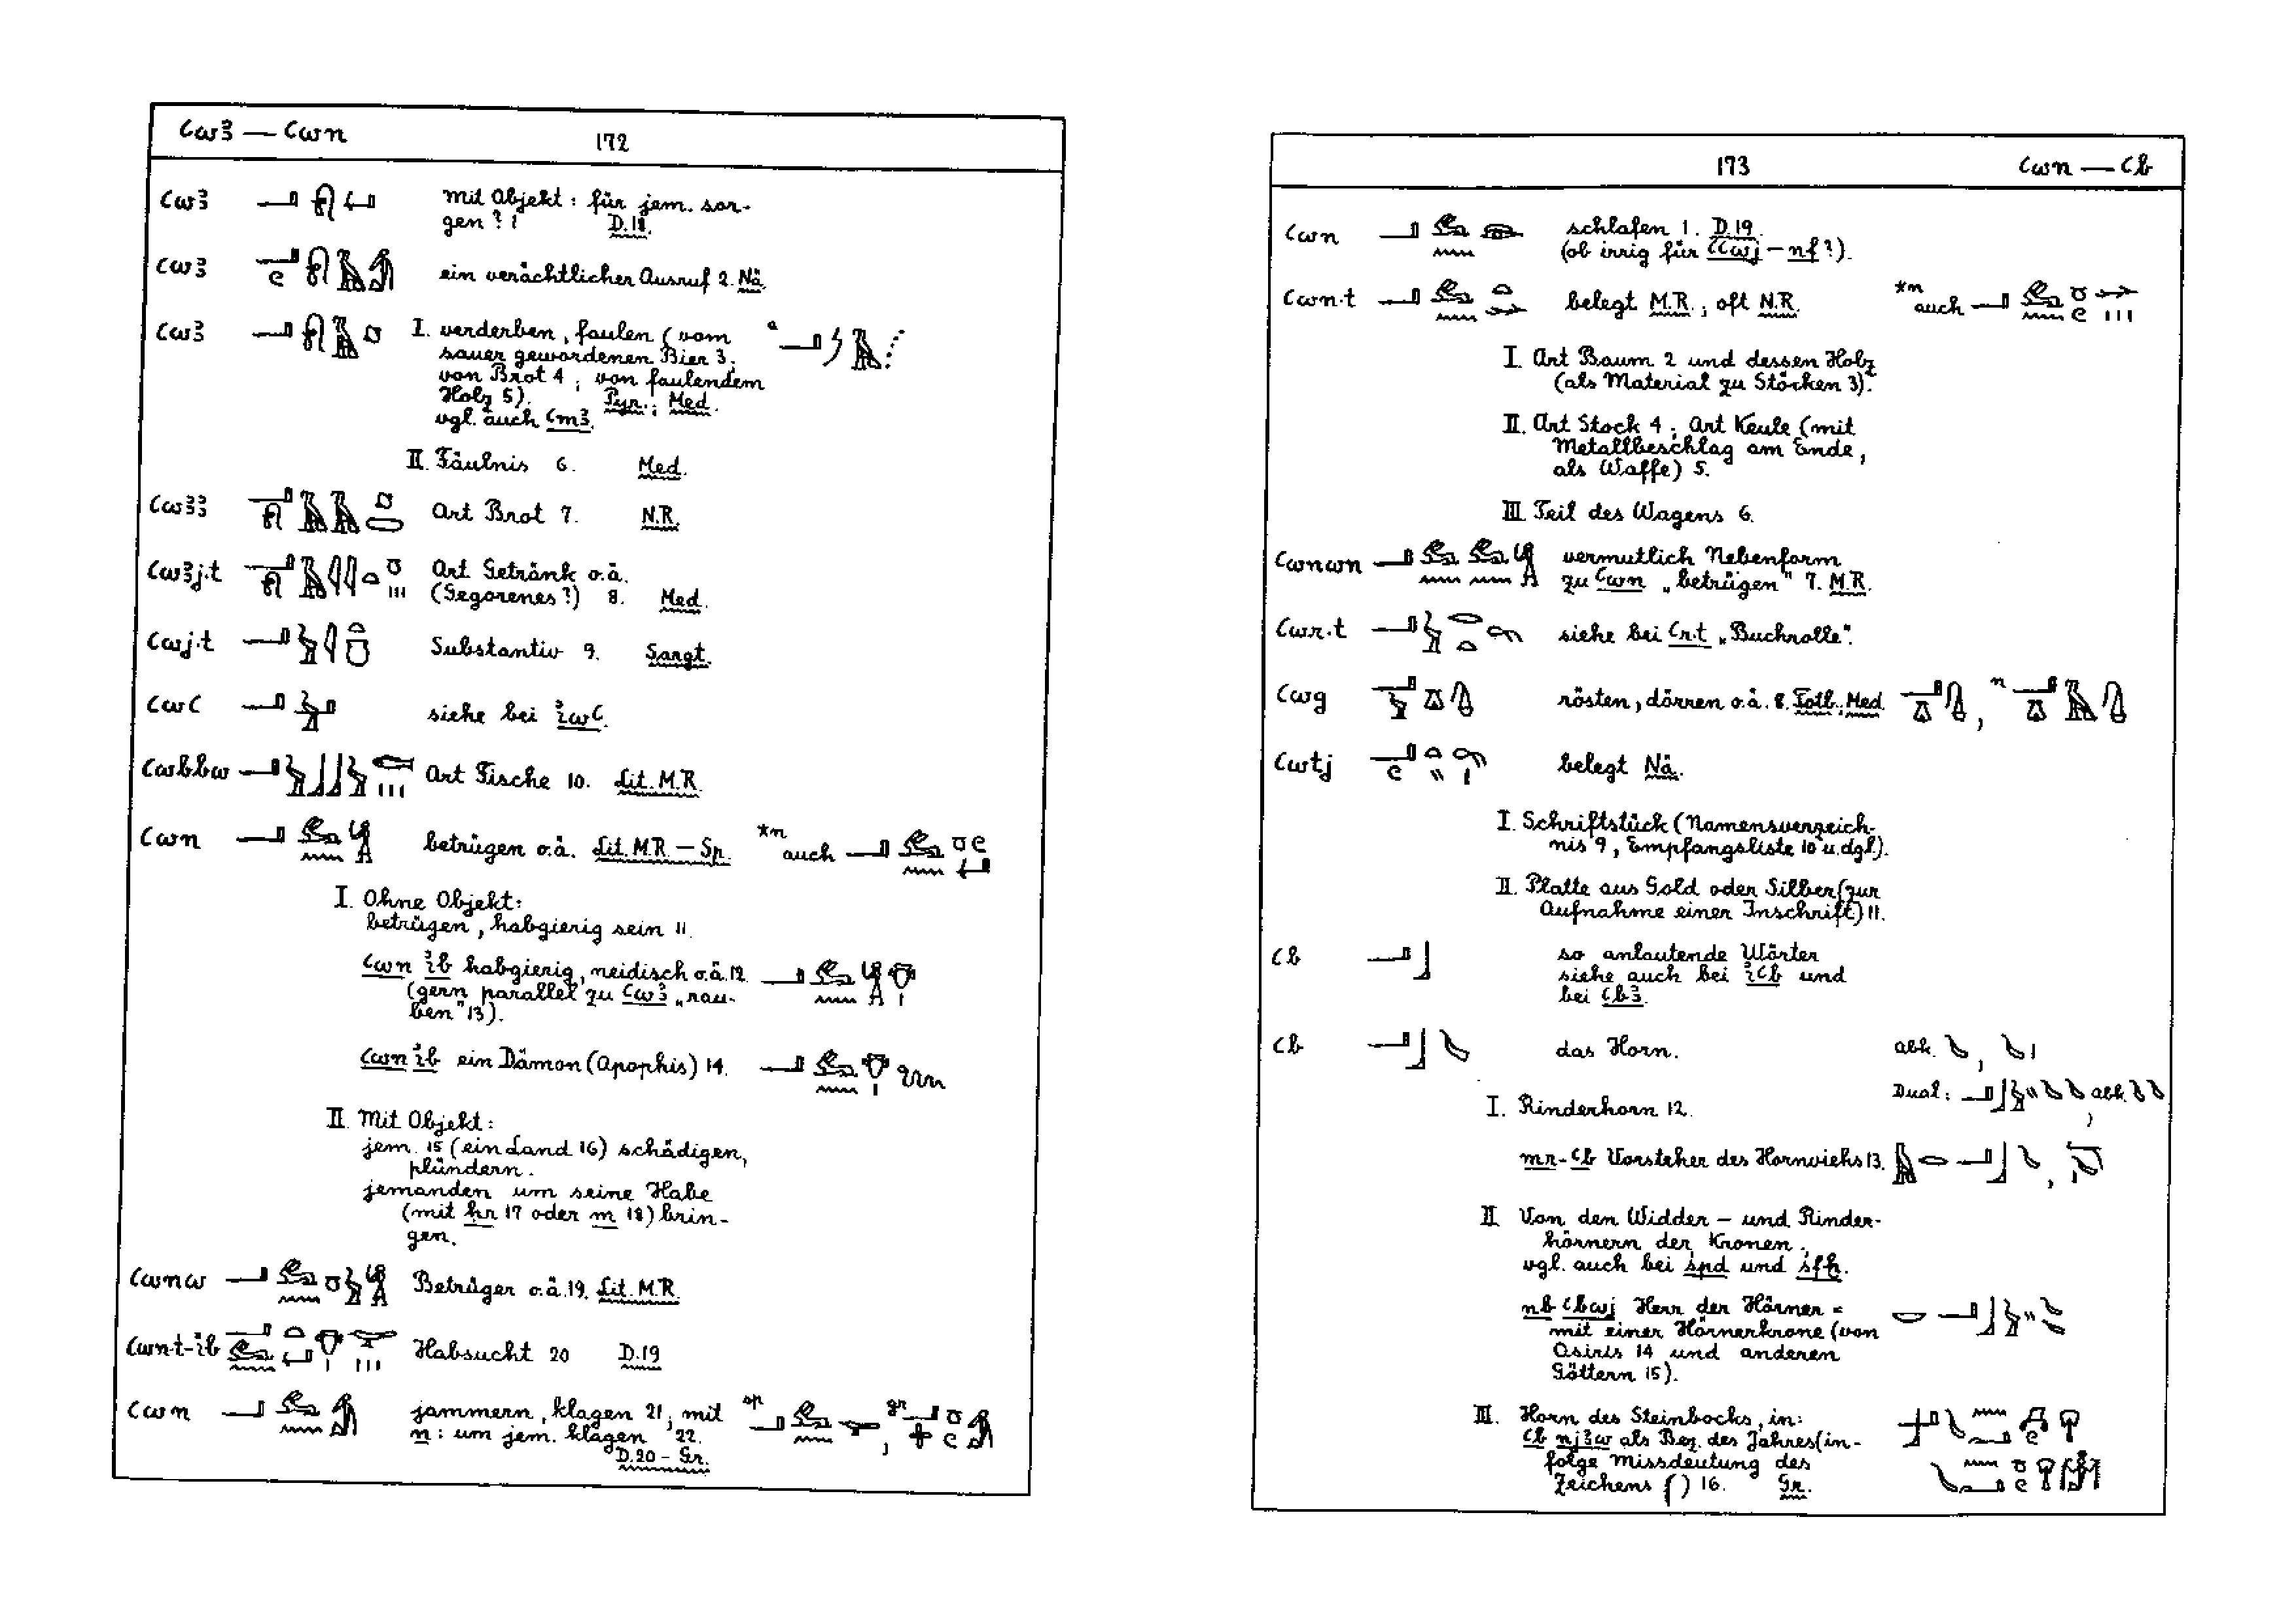 ꜥwꜣ — ꜥwn 172
ꜥwꜣ mit Objekt: für jem. sor-
gen? 1 D.18.
ꜥwꜣ ein verächtlicher Ausruf 2. Nä.
ꜥwꜣ I. verderben, faulen (vom
sauer gewordenen Bier 3;
von Brot 4; von faulendem
Holz 5). Pyr.; Med.
vgl. auch ꜥmꜣ.
II. Fäulnis 6. Med.
ꜥwꜣꜣ Art Brot 7. N.R.
ꜥwꜣj·t Art Getränk o.ä.
(Gegorenes?) 8. Med.
ꜥwj·t Substantiv 9. Sargt.
ꜥwꜥ siehe bei ꞽwꜥ.
ꜥwbbw Art Fische 10. Lit. M.R.
ꜥwn betrügen o.ä. Lit. M.R. — Sp. *n auch
I. Ohne Objekt:
betrügen, habgierig sein 11.
ꜥwn ꞽb habgierig, neidisch o.ä. 12.
(gern parallel zu ꜥwꜣ „rau-
ben" 13).
ꜥwn ꞽb ein Dämon (Apophis) 14.
II. Mit Objekt:
jem. 15 (ein Land 16) schädigen,
plündern.
jemanden um seine Habe
(mit ḥr 17 oder m 18) brin-
gen.
ꜥwnw Betrüger o.ä. 19. Lit. M.R.
ꜥwn·t-ꞽb Habsucht 20 D.19
ꜥwn jammern, klagen 21; mit sp gr
n: um jem. klagen 22.
D.20 – Gr.
173 ꜥwn — ꜥb
ꜥwn schlafen 1. D.19.
(ob irrig für ꜥꜥwj – nf?).
ꜥwn·t belegt M.R.; oft N.R. *n auch
I. Art Baum 2 und dessen Holz
(als Material zu Stöcken 3).
II. Art Stock 4; Art Keule (mit
Metallbeschlag am Ende,
als Waffe) 5.
III. Teil des Wagens 6.
ꜥwnwn vermutlich Nebenform
zu ꜥwn „betrügen" 7. M.R.
ꜥwr·t siehe bei ꜥr·t „Buchrolle".
ꜥwg rösten, dörren o.ä. 8. Totb.; Med. , n
ꜥwtj belegt Nä.
I. Schriftstück (Namensverzeich-
nis 9, Empfangsliste 10 u. dgl.).
II. Platte aus Gold oder Silber (zur
Aufnahme einer Inschrift) 11.
ꜥb so anlautende Wörter
siehe auch bei ꞽꜥb und
bei ꜥbꜣ.
ꜥb das Horn. abk. ,
Dual: , abk.
I. Rinderhorn 12.
mr-ꜥb Vorsteher des Hornviehs 13. ,
II. Von den Widder – und Rinder-
hörnern der Kronen;
vgl. auch bei spd und sfḫ.
nb ꜥbwj Herr der Hörner =
mit einer Hörnerkrone (von
Osiris 14 und anderen
Göttern 15).
III. Horn des Steinbocks, in:
ꜥb njꜣw als Bez. des Jahres (in-
folge Missdeutung des
Zeichens ) 16. Gr.